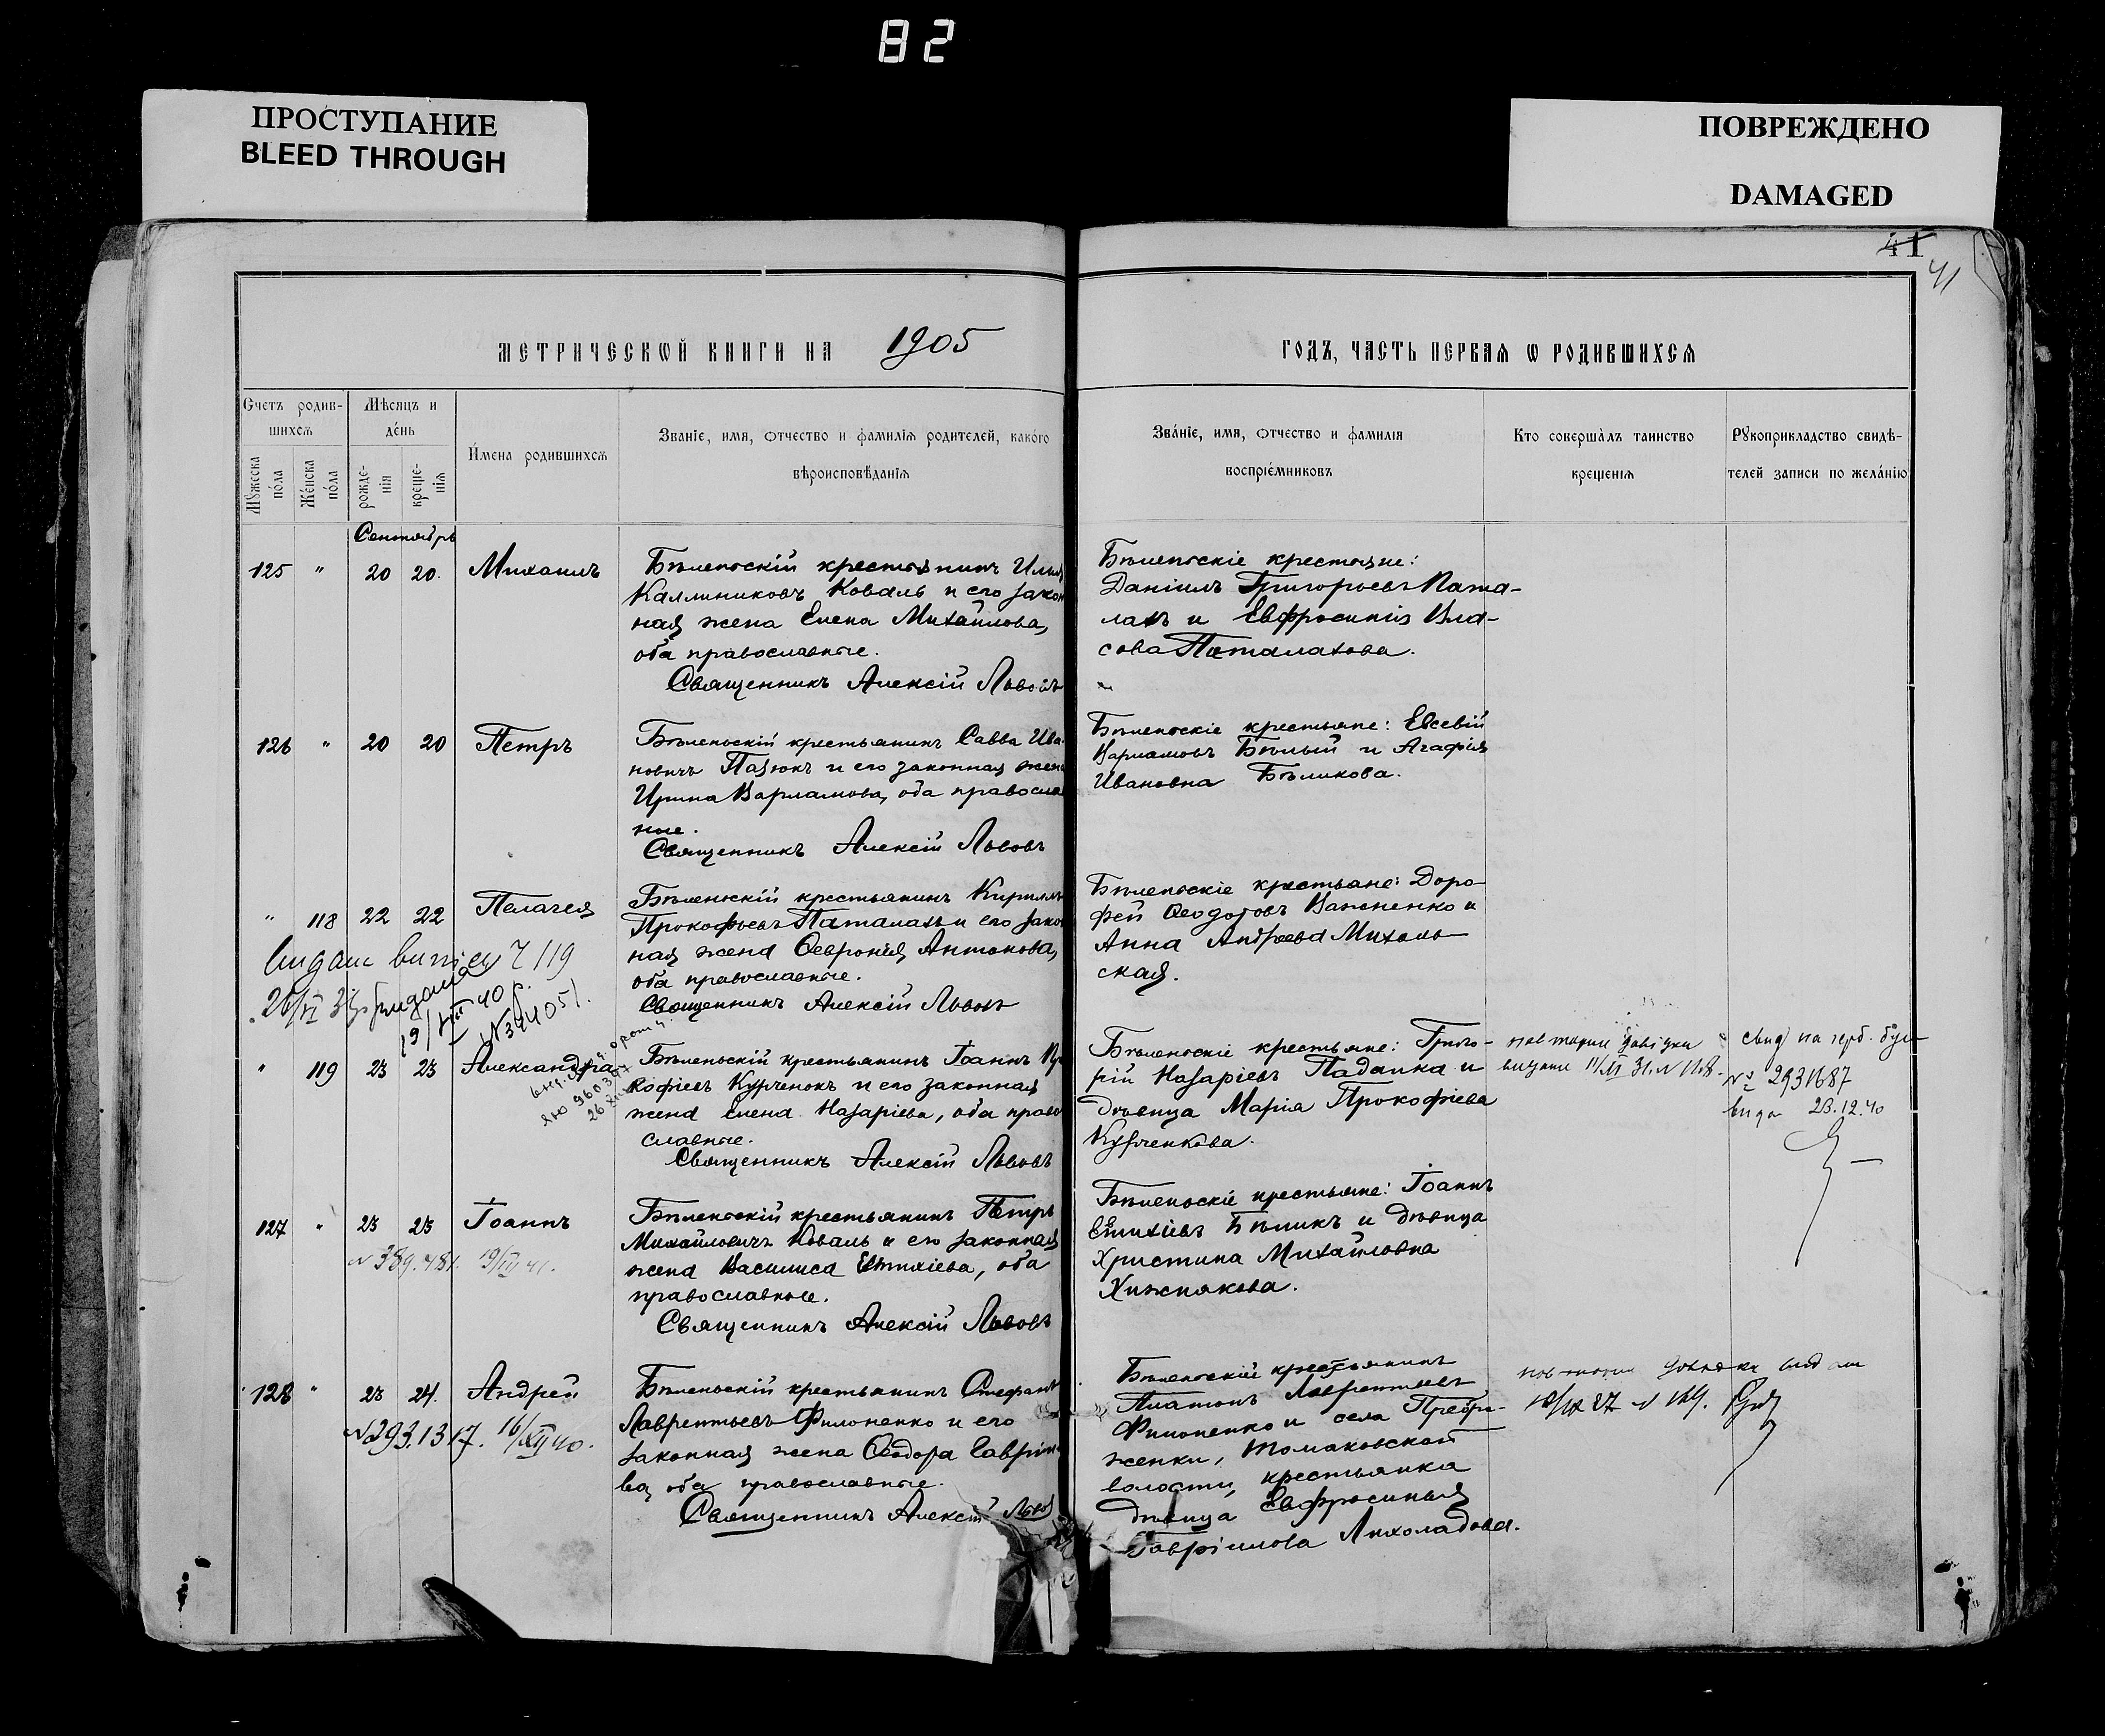 82
ПРОСТУПАНИЕ
BLEED THROUGH
ПОВРЕЖДЕНО
DAMAGED
41
41
МЕТРИЧЕСКѠЙ КНИГИ НА 1905
ГОДЪ, ЧАСТЬ ПЕРВАЯ Ѡ РОДИВШИХСЯ
Счетъ родив-
шихся
Мꙋжеска пола
Женска пола
Мѣсяцъ и
день
рожде-
нія
креще-
нія
Имена родившихся
Званіе, имя, отчество и фамилія родителей, какого
вѣроисповѣданія
Званіе, имя, отчество и фамилія
воспріемниковъ
Кто совершалъ таинство
крещенія
Рꙋкоприкладство свидѣ-
телей записи по желанію
Сентябрь
125 " 20 20. Михаилъ
Бѣленьскій крестьянинъ Илія
Каллиниковъ Коваль и его закон
ная жена Елена Михайлова,
оба православные.
Священникъ Алексій Львовъ
Бѣленьскіе крестьяне:
Даніилъ Григорьевъ Пата-
лахъ и Евфросинія Вла-
сова Паталахова.
126 " 20 20 Петръ
Бѣленьскій крестьянинъ Савва Ива
новичъ Пазюкъ и его законная жена
Ирина Варламова, оба правосла
ные.
Священникъ Алексій Львовъ
Бѣленьскіе крестьяне: Евсевій
Варламовъ Бѣлый и Агафія
Ивановна Бѣликова.
" 118 22 22 Пелагея
Бѣленьскій крестьянинъ Кириллъ
Прокофьевъ Паталахъ и его закон
ная жена Ѳевронія Антонова,
оба православные.
Священникъ Алексій Львовъ
Бѣленьскіе крестьяне: Доро-
фей Ѳеодотовъ Важненко и
Анна Андреева Михаль-
ская.
119
40 р.
№344051.
" 119 23 23 Александра
Бѣленьскій крестьянинъ Іоаннъ Про
кофіевъ Курченокъ и его законная
жена Елена Назаріева, оба право
славные.
Священникъ Алексій Львовъ
Бѣленьскіе крестьяне: Григо-
рій Назаріевъ Падалка и
дѣвица Марія Прокофіева
Курченкова.
№ 2931687
23.12.40
127 " 23 23 Іоаннъ
№ 389.481.
Бѣленьскій крестьянинъ Петръ
Михайловичъ Коваль и его законная
жена Василиса Евтихіева, оба
православные.
Священникъ Алексій Львовъ
Бѣленьскіе крестьяне: Іоаннъ
Евтихіевъ Бѣликъ и дѣвица
Христина Михайловна
Хижнякова.
128 " 23 24. Андрей
№293.1317. 16/XII 40.
Бѣленьскій крестьянинъ Стефанъ
Лаврентьевъ Филоненко и его
законная жена Ѳеодора Гавріи
ва, оба православные.
Священникъ Алексій Львов
Бѣленьскій крестьянинъ
Платонъ Лаврентьевъ
Филоненко и села Преобра-
женки, Томаковской
волости, крестьянка
дѣвица Евфросинья
Гавріилова Лихоладова.